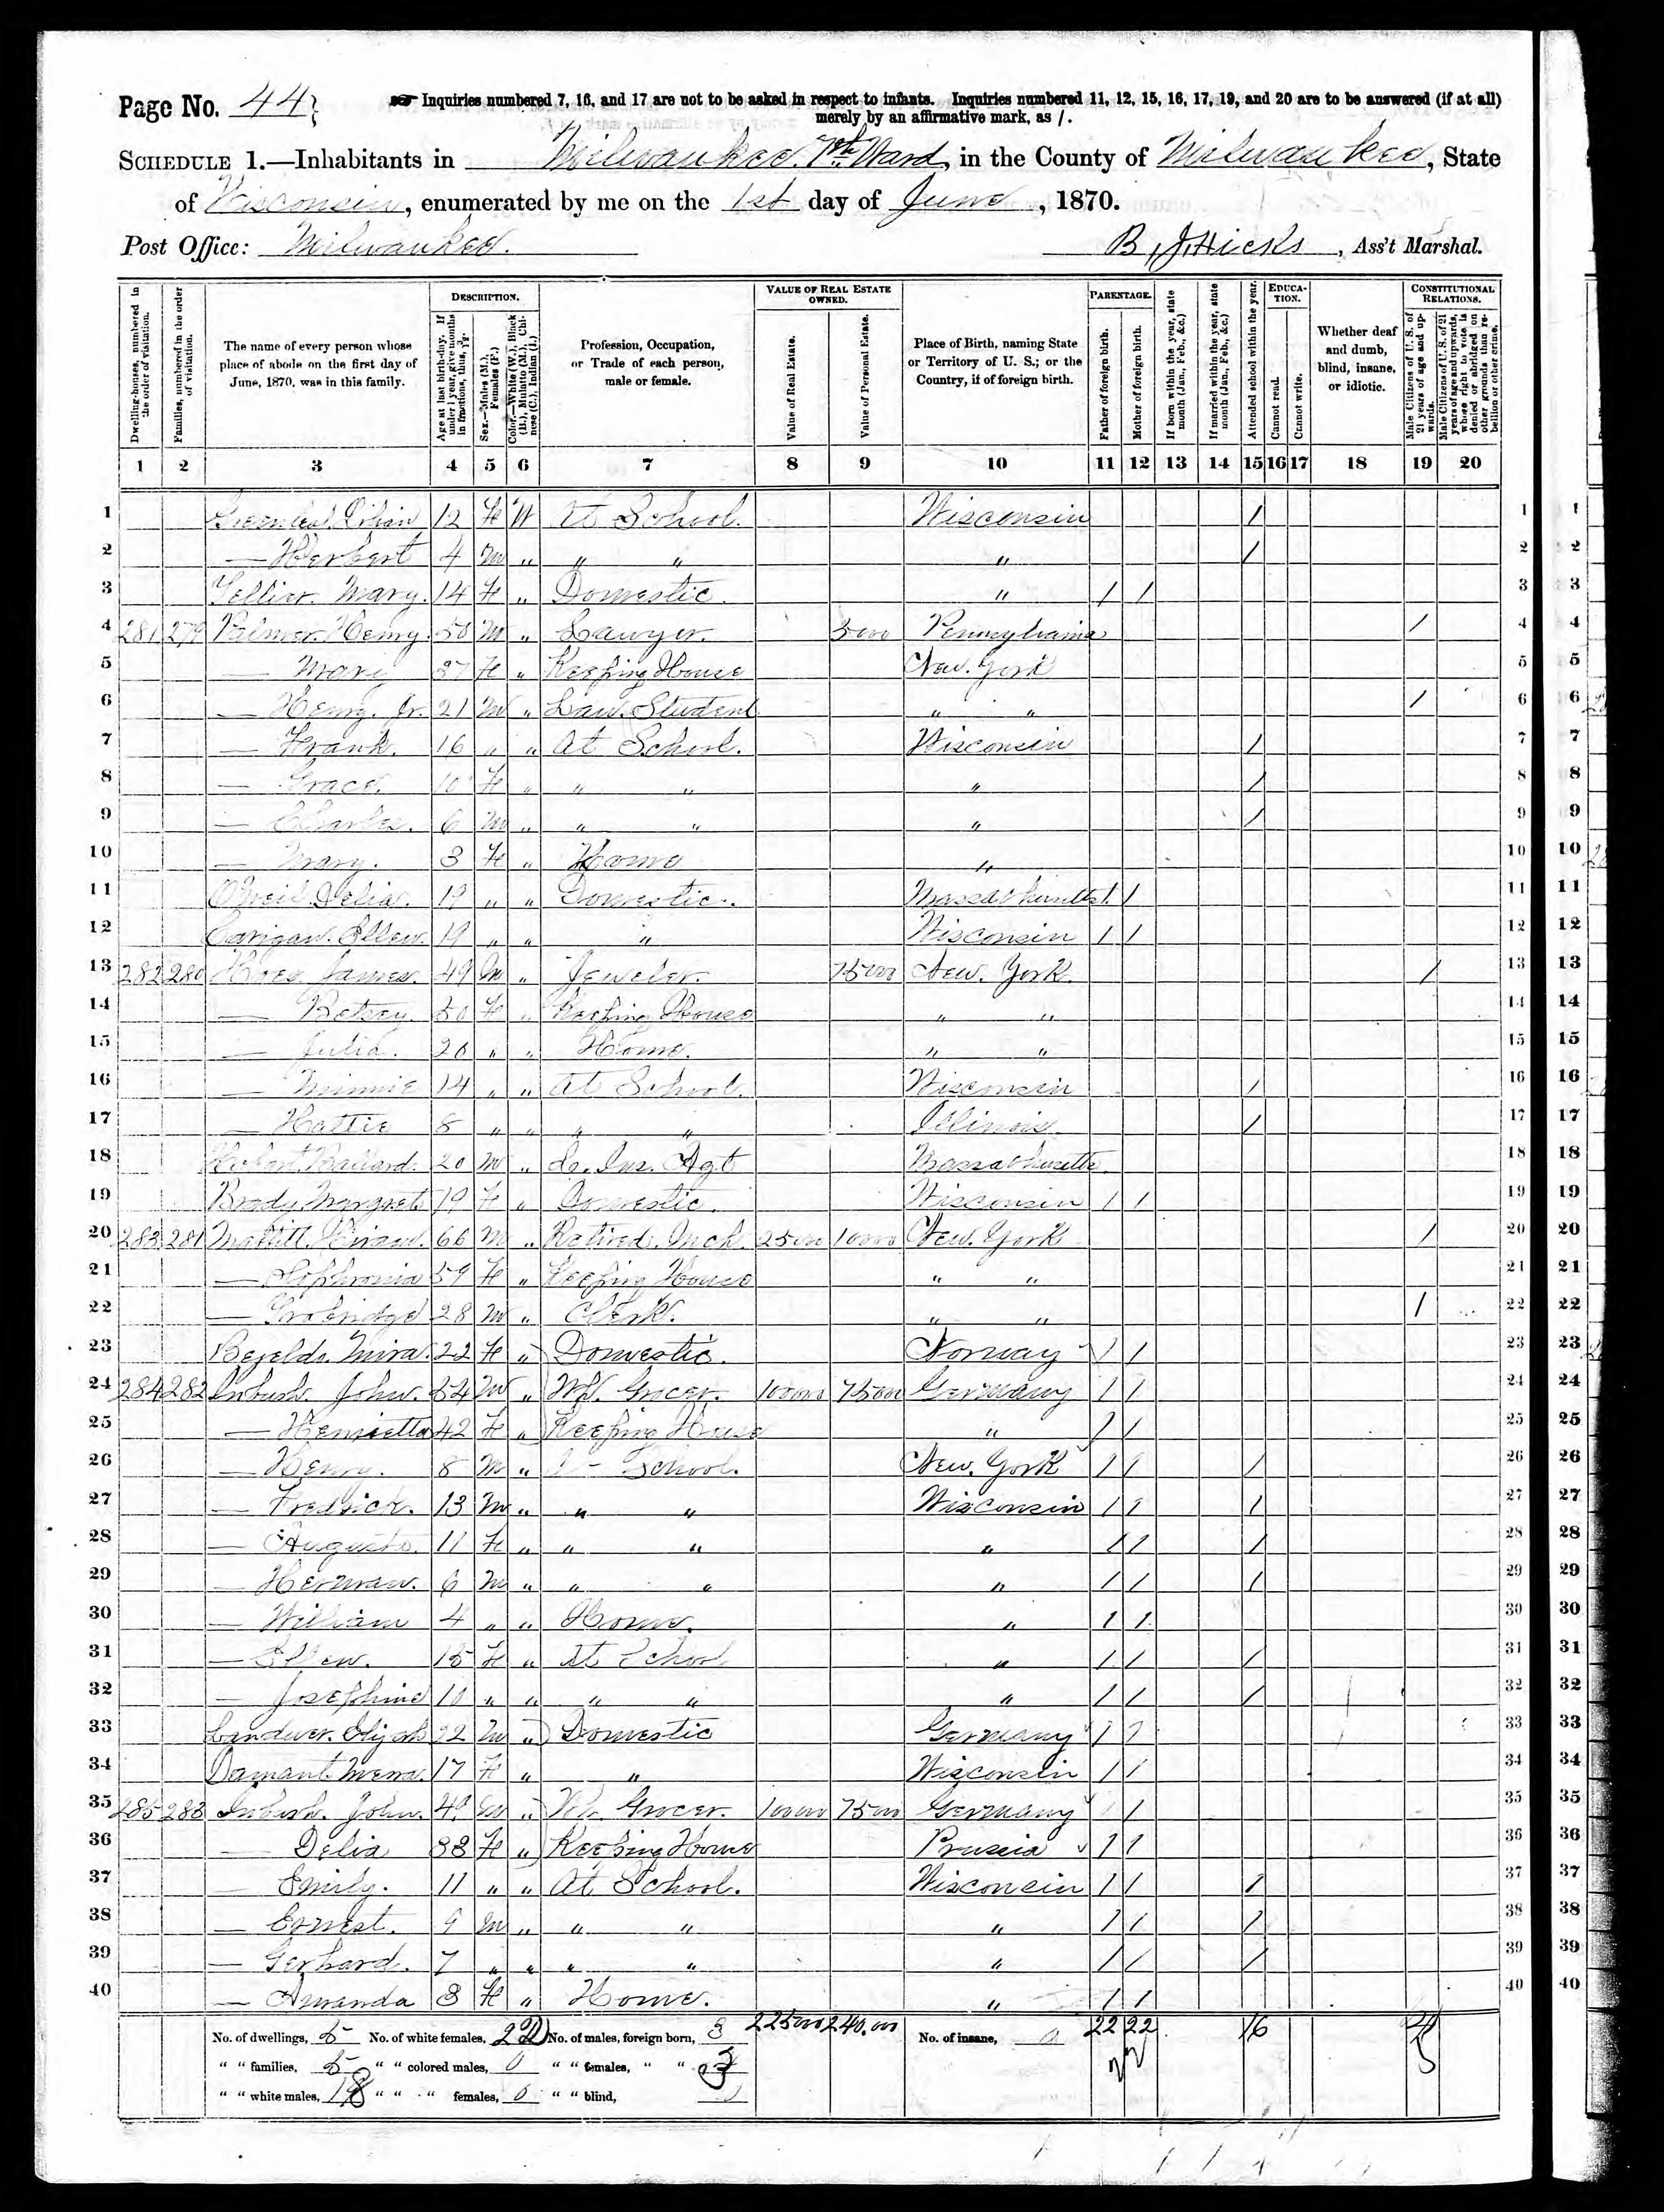 Page No. 44
Inquiries numbered 7, 16, and 17 are not to be asked in respect to infants. Inquiries numbered 11, 12, 15, 16, 17, 19, and 20 are to be answered (if at all)
merely by an affirmative mark, as /.
SCHEDULE 1.—Inhabitants in Milwaukee 7th Ward, in the County of Milwaukee, State
of Wisconsin, enumerated by me on the 1st day of June, 1870.
Post Office: Milwaukee. B. J. Hicks, Ass't Marshal.
Dwelling-houses, numbered in the order of visitation.
Families, numbered in the order of visitation.
The name of every person whose place of abode on the first day of June, 1870, was in this family.
DESCRIPTION.
Age at last birth-day. If under 1 year, give months in fractions, thus,
Sex.—Males (M.), Females (F.)
Color.—White (W.), Black (B.), Mulatto (M.), Chinese (C.), Indian (I.)
Profession, Occupation, or Trade of each person, male or female.
VALUE OF REAL ESTATE OWNED.
Value of Real Estate.
Value of Personal Estate.
Place of Birth, naming State or Territory of U. S.; or the Country, if of foreign birth.
PARENTAGE.
Father of foreign birth.
Mother of foreign birth.
If born within the year, state month (Jan., Feb., &c.)
If married within the year, state month (Jan., Feb., &c.)
Attended school within the year.
EDUCATION.
Cannot read.
Cannot write.
Whether deaf and dumb, blind, insane, or idiotic.
CONSTITUTIONAL RELATIONS.
Male Citizens of U. S. of 21 years of age and upwards.
Male Citizens of U. S. of 21 years of age and upwards, whose right to vote is denied or abridged on other grounds than rebellion or other crime.
1 2 3 4 5 6 7 8 9 10 11 12 13 14 15 16 17 18 19 20
1 Lilian 12 F W At School. Wisconsin / 1
2 — Herbert 4 M " " " " / 2
3 Mary. 14 F " Domestic. " / / 3
4 281 279 Palmer. Henry. 50 M " Lawyer. 5000 Pennsylvania / 4
5 — Mary 37 F " Keeping House New. York 5
6 — Henry. Jr. 21 M " Law. Student " " / 6
7 — Frank. 16 " " At School. Wisconsin / 7
8 — Grace. 10 F " " " " / 8
9 — Charles. 6 M " " " " / 9
10 — Mary. 3 F " Home " 10
11 O'Neil. Delia. 19 " " Domestic. Massachusetts / / 11
12 Ellen. 19 " " " Wisconsin / / 12
13 282 280 James. 49 M " Jeweler. 7500 New. York / 13
14 — Betsey. 50 F " Keeping House " " 14
15 — Julia. 20 " " Home. " " 15
16 — Minnie 14 " " At School. Wisconsin / 16
17 — Hattie 8 " " " " Illinois / 17
18 Ballard. 20 M " Ins. Agt Massachusetts. 18
19 Brady. Margret 19 F " Domestic. Wisconsin / / 19
20 283 281 Hiram. 66 M " Retired. Mch. 25000 10000 New. York / 20
21 — Sophronia 59 F " Keeping House " " 21
22 — 28 M " Clerk. " " / 22
23 22 F " Domestic. Norway / / 23
24 284 282 Inbush. John. 54 M " Wh. Grocer. 100000 75000 Germany / / 24
25 — Henrietta 42 F " Keeping House " / / 25
26 — Henry. 8 M " School. New. York / / / 26
27 — Fredrick. 13 M " " " Wisconsin / / / 27
28 — Augusta. 11 F " " " " / / / 28
29 — Herman. 6 M " " " " / / / 29
30 — William 4 " " Home. " / / 30
31 — Ellen. 15 F " At School " / / / 31
32 — Josephine 10 " " " " " / / / 32
33 22 M " Domestic Germany / / 33
34 17 F " " Wisconsin / / 34
35 285 283 Inbush. John. 49 M " Wh. Grocer. 100000 75000 Germany / / 35
36 — Delia 33 F " Keeping House Prussia / / 36
37 — Emily. 11 " " At School. Wisconsin / / / 37
38 — Ernest. 9 M " " " " / / / 38
39 — Gerhard. 7 " " " " " / / / 39
40 — Amanda 3 F " Home. " / / 40
No. of dwellings, 5 No. of white females, 22 No. of males, foreign born, 3 225000 240,000 No. of insane, 0 22 22 16
" " families, 5 " " colored males, 0 " " females, " " 3
" " white males, 18 " " " females, 0 " " blind,